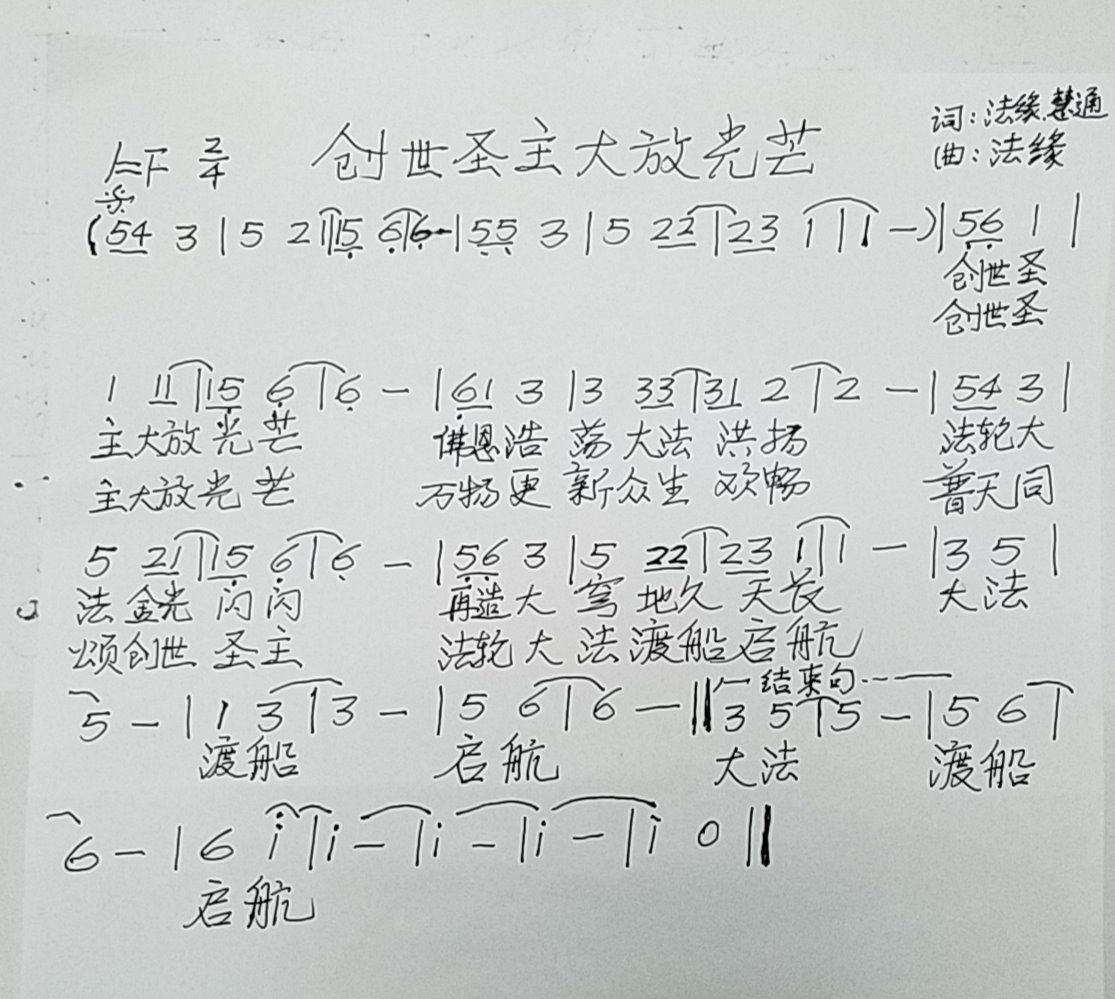 创世圣主大放光芒
词：法缘.慧通
1=F 2/4
曲：法缘
(54 3 | 5 21 | 15 6 | 6 - | 55 3 | 5 22 | 23 1 | 1 -) | 56 1 |
创世圣
创世圣
1 11 | 15 6 | 6 - | 61 3 | 3 33 | 31 2 | 2 - | 54 3 |
主大放光芒 佛恩浩荡大法洪扬 法轮大
主大放光芒 万物更新众生欢畅 普天同
5 21 | 15 6 | 6 - | 56 3 | 5 22 | 23 1 | 1 - | 3 5 |
法金光闪闪 再造大穹地久天长 大法
颂创世圣主 法轮大法渡船启航
结束句
5 - | 1 3 | 3 - | 5 6 | 6 - || 3 5 | 5 - | 5 6 |
渡船 启航 大法 渡船
6 - | 6 i | i - | i - | i - | i 0 ||
启航